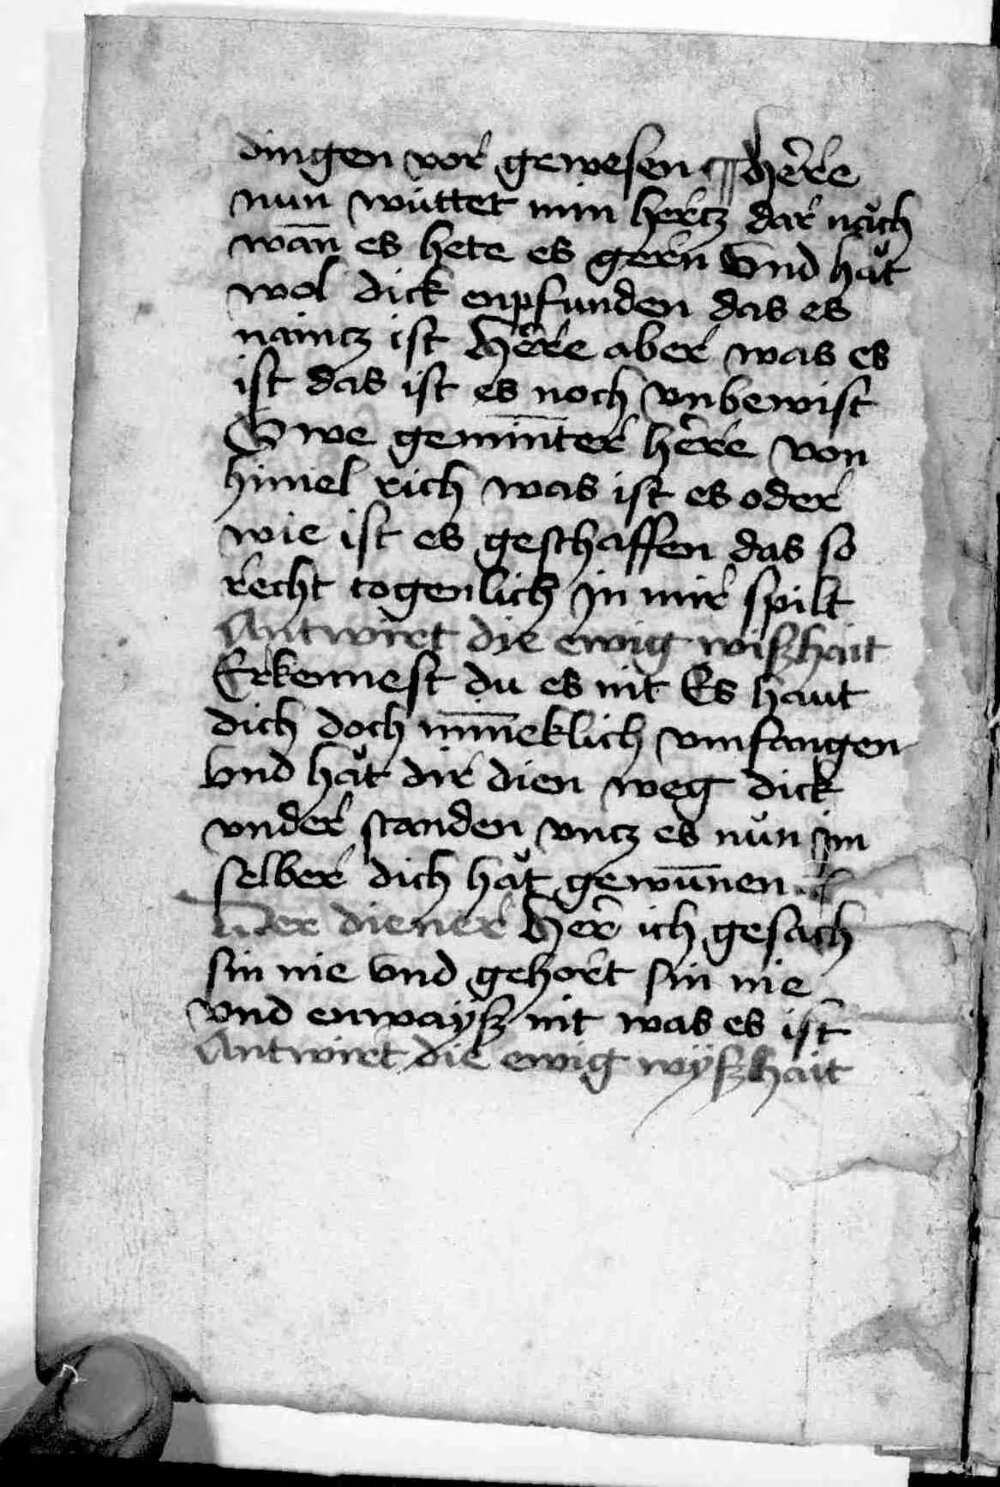 dingen vor gewesen ¶ herre
nun wüttet min hertz dar nauͦch
wān es hete es gern Vnd hauͦt
wol dick enpfunden das es
naintz ist Herre aber was es
ist das ist es noch vnbewist
Owe geminter herre von
himel rich was ist es oder
wie ist es geschaffen das so
recht togenlich in mir spilt
Antwirt die ewig wiſzhait
Erkennest du es nit Es haut
dich doch minneklich vmfangen
Vnd hauͦt dir dien weg dick
vnder standen vntz es nŭn im
selber dich hauͦt gewūnen
Der diener Her ich gesach
sin nie Vnd gehort sin nie
vnd enwayſz nit was es ist
Antwirt die ewig wÿſzhait